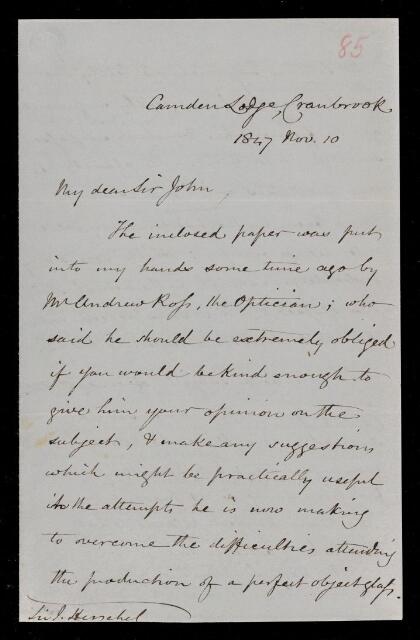 85
Camden Lodge, Cranbrook
1847 Nov. 10
My dear Sir John,
The inclosed paper was put
into my hands some time ago by
Mr Andrew Ross, the Optician; who
said he should be extremely obliged
if you would be kind enough to
give him your opinion on the
subject, & make any suggestions
which might be practically useful
in the attempts he is now making
to overcome the difficulties attending
the production of a perfect object glass.
Sir J. Herschel